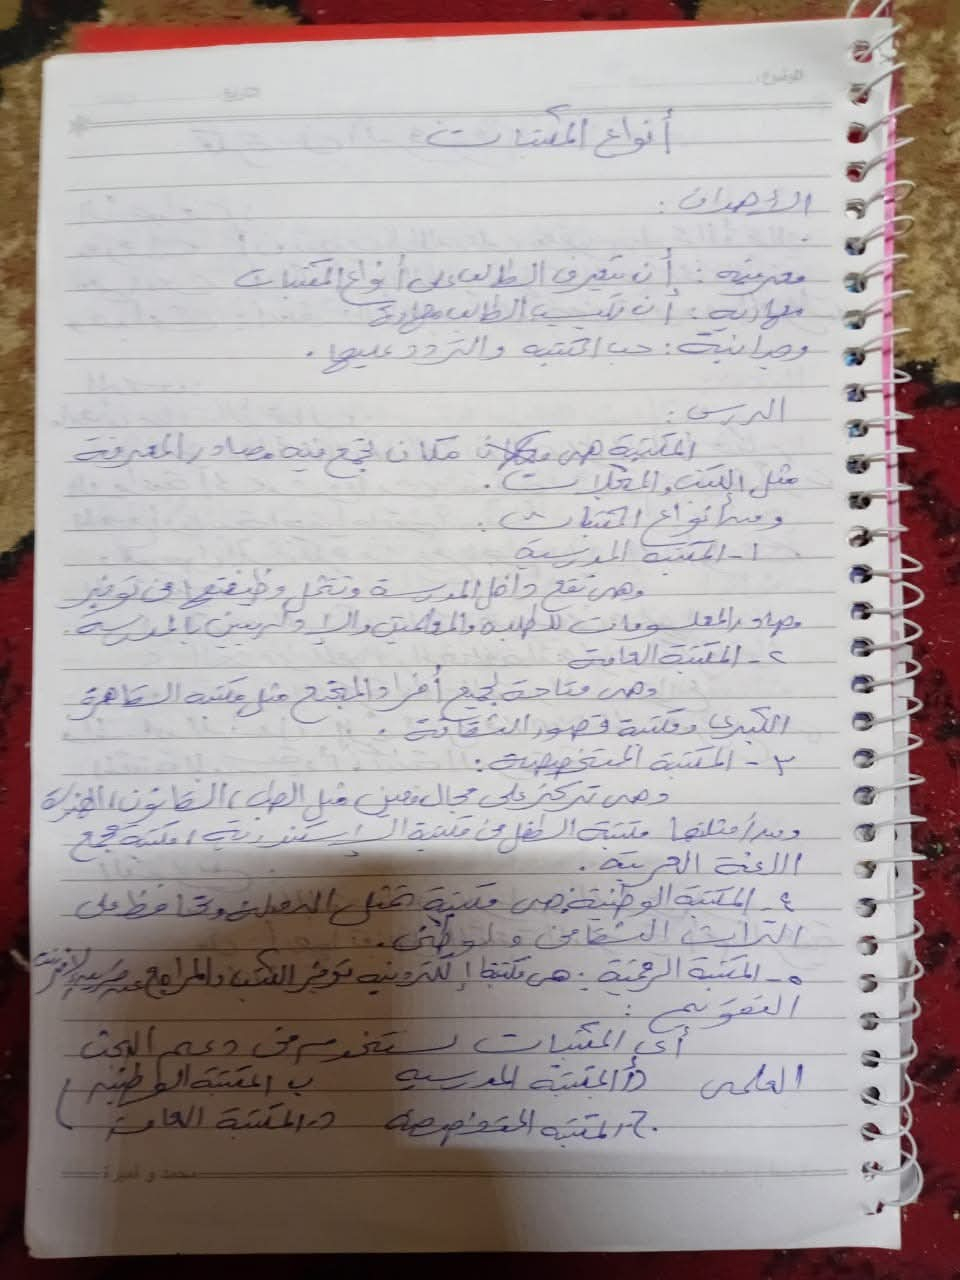 الموضوع: التاريخ:
أنواع المكتبات
الأهداف :
معرفية : أن يتعرف الطالب على أنواع المكتبات
مهارية : أن يكتسب الطالب مهارة
وجدانية : حب المكتبة والتردد عليها .
الدرس :
المكتبة هى مكان تجمع فيه مصادر المعرفة
مثل الكتب والمجلات .
ومن أنواع المكتبات :
١- المكتبة المدرسية
وهى تقع داخل المدرسة وتتمثل وظيفتها فى توفير
مصادر المعلومات للطلبة والمعلمين والإداريين بالمدرسة .
٢- المكتبة العامة
وهى متاحة لجميع أفراد المجتمع مثل مكتبة القاهرة
الكبرى ومكتبة قصور الثقافة .
٣- المكتبة المتخصصة :
وهى تركز على مجال معين مثل الطب ، القانون ، الهندسة
ومن أمثلتها مكتبة الطفل فى مكتبة الإسكندرية ، مكتبة مجمع
اللغة العربية .
٤- المكتبة الوطنية : هى مكتبة تمثل الدولة وتحافظ على
التراث الثقافى والوطنى .
٥- المكتبة الرقمية : هى مكتبة إلكترونية توفر الكتب والمراجع عبر الإنترنت
التقويم :
أى المكتبات تستخدم فى دعم البحث
العلمى (أ المكتبة المدرسية ب المكتبة الوطنية
ج- المكتبة المتخصصة د- المكتبة العامة )